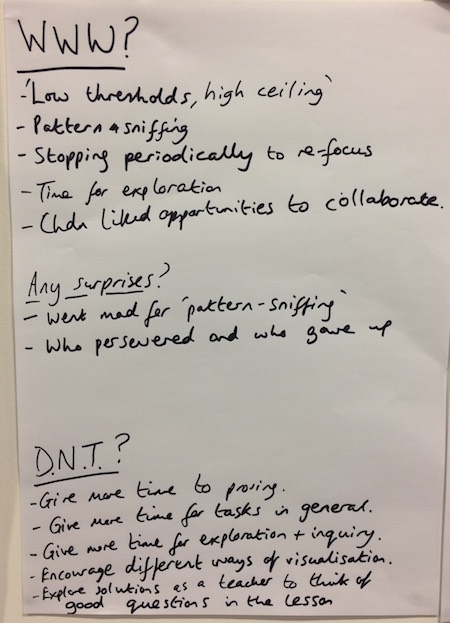 WWW?
- 'Low thresholds, high ceiling'
- Pattern & sniffing
- Stopping periodically to re-focus
- Time for exploration
- Chdn liked opportunities to collaborate.
Any surprises?
- went mad for 'pattern-sniffing'
- Who persevered and who gave up
D.N.T.?
- Give more time to proving.
- Give more time for tasks in general.
- Give more time for exploration + inquiry.
- Encourage different ways of visualisation.
- Explore solutions as a teacher to think of
good questions in the lesson